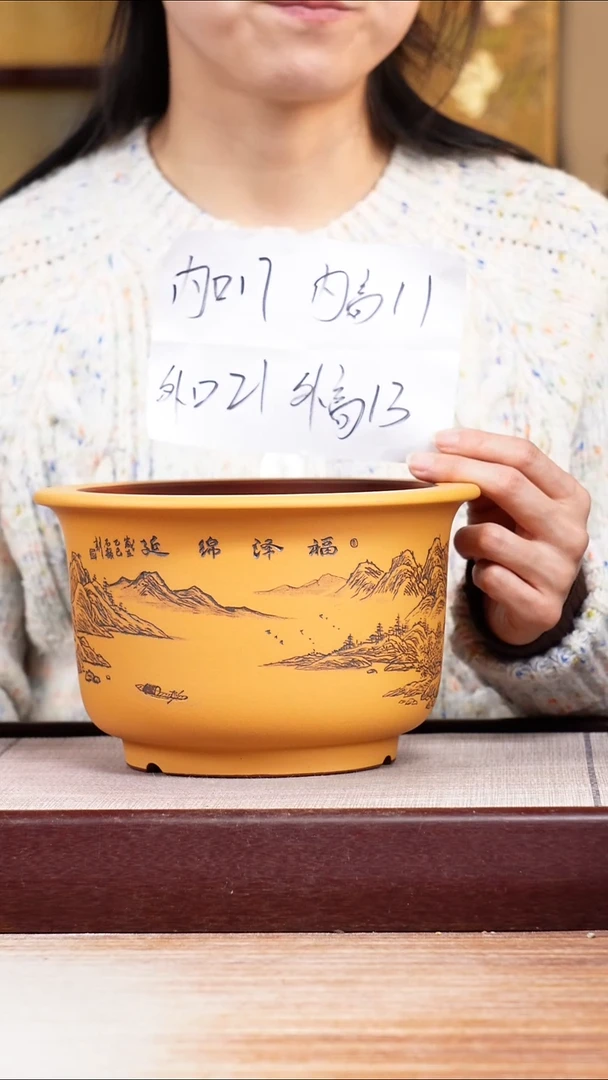 内口17 内高11
外口21 外高13
福泽绵延